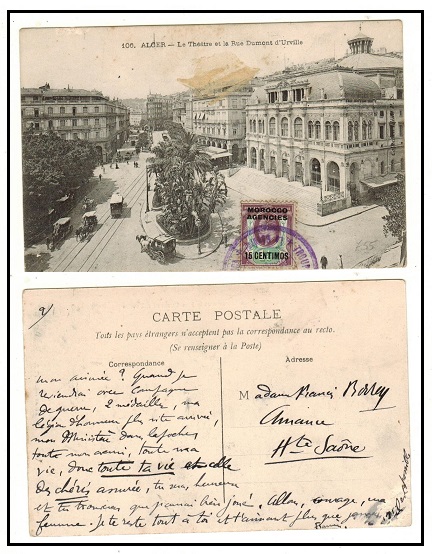 106. ALGER — Le Théâtre et la Rue Dumont d'Urville
MOROCCO
AGENCIES
15 CENTIMOS
£55
CARTE POSTALE
Tous les pays étrangers n'acceptent pas la correspondance au recto.
(Se renseigner à la Poste)
Correspondance
Adresse
mon arrivée ? Quand je
reviendrai avec Campagne
de guerre, 2 médailles, ma
légion d'honneur plus vite arrivée,
mon Ministre dans la poche,
toute ma
vie, donc toute ta vie et celle
des chéris assurée, tu seras heureux
et tu trouveras que j'aurai bien joué. Allons, courage, ma
femme. Je te reste tout à toi et t'aimant plus que jamais
Madame Francis Borrey
Amance
Hte Saône